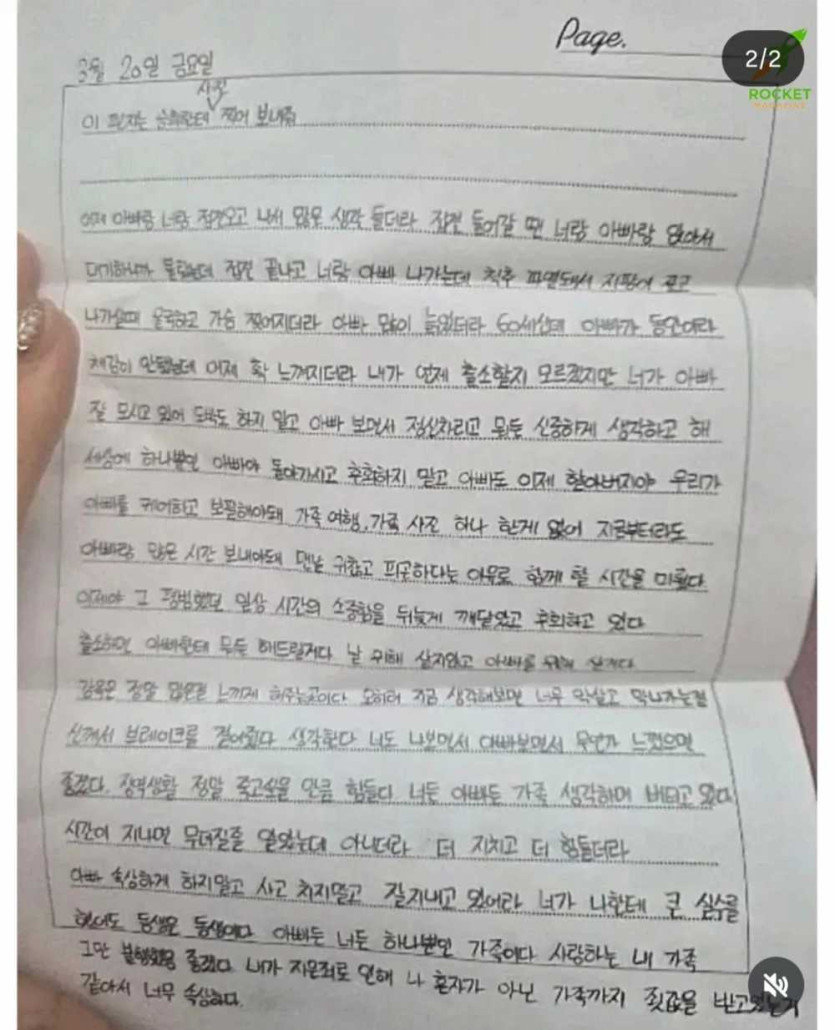 Page.
2/2
ROCKET
3월 20일 금요일
사진
이 편지는 한테 찍어 보내줘
어제 아빠랑 너랑 접견오고 나서 많은 생각 들더라 접견 들어갈 땐 너랑 아빠랑 앉아서
대기하니까 몰랐는데 접견 끝나고 너랑 아빠 나가는데 척추 파열돼서 지팡이 짚고
나가실때 울컥하고 가슴 찢어지더라 아빠 많이 늙었더라 60세신데 아빠가 동안이라
체감이 안됐는데 어제 확 느껴지더라 내가 언제 출소할지 모르겠지만 너가 아빠
잘 모시고 있어 도박도 하지 말고 아빠 보면서 정신차리고 뭐든 신중하게 생각하고 해
세상에 하나뿐인 아빠야 돌아가시고 후회하지 말고 아빠도 이제 할아버지야 우리가
아빠를 케어하고 보필해야돼 가족 여행, 가족 사진 하나 한게 없어 지금부터라도
아빠랑 많은 시간 보내야돼 맨날 귀찮고 피곤하다는 이유로 함께 할 시간을 미뤘다
이제야 그 평범했던 일상 시간의 소중함을 뒤늦게 깨달았고 후회하고 있다
출소하면 아빠한테 뭐든 해드릴거다 날 위해 살지않고 아빠를 위해 산거다
감옥은 정말 많은걸 느끼게 해주는곳이다 오히려 지금 생각해보면 너무 막살고 막나가는걸
신께서 브레이크를 걸어줬다 생각한다 너도 나보면서 아빠보면서 무언가 느꼈으면
좋겠다. 징역생활 정말 죽고싶을 만큼 힘들다 너든 아빠든 가족 생각하며 버티고 있다
시간이 지나면 무뎌질줄 알았는데 아니더라 더 지치고 더 힘들더라
아빠 속상하게 하지말고 사고 치지말고 잘지내고 있어라 너가 나한테 큰 실수를
했어도 동생은 동생이다 아빠든 너든 하나뿐인 가족이다 사랑하는 내 가족
그만 불행했음 좋겠다 내가 지은죄로 인해 나 혼자가 아닌 가족까지 죗값을 받고있는거
같아서 너무 속상하다.